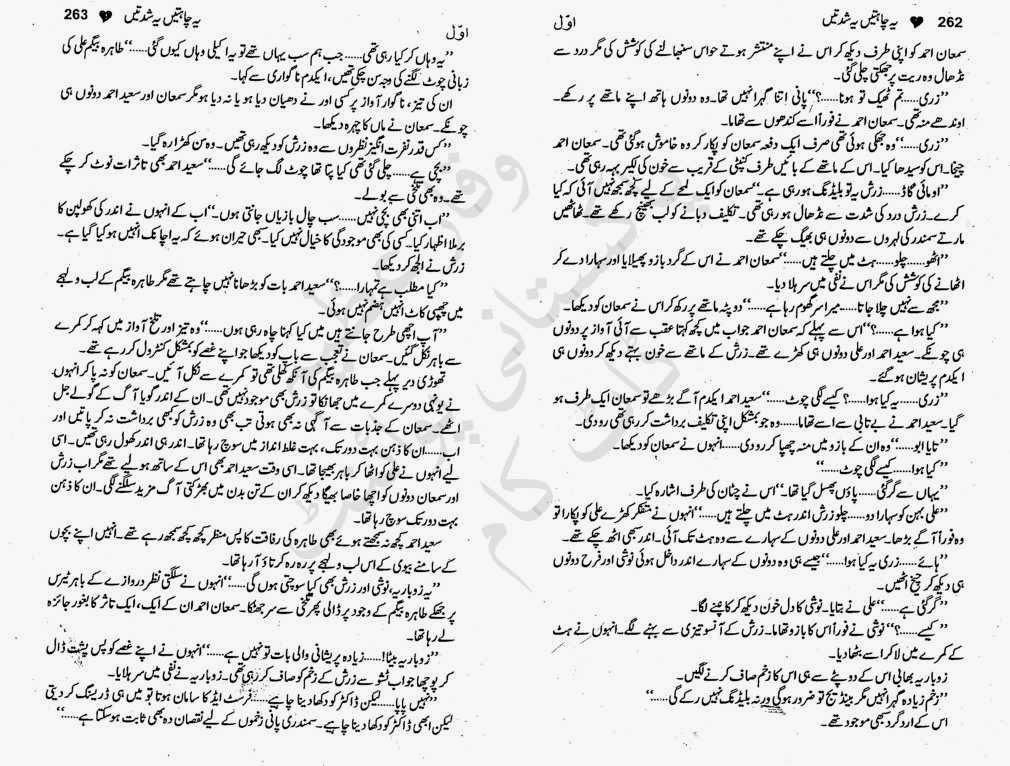 262 یہ چاہتیں یہ شدتیں اوّل
سمعان احمد کو اپنی طرف دیکھ کر اس نے اپنے منتشر ہوتے حواس سنبھالنے کی کوشش کی مگر درد سے
نڈھال وہ ریت پر جھکتی چلی گئی۔
”زری...... تم ٹھیک تو ہونا......؟“ پانی اتنا گہرا نہیں تھا۔ وہ دونوں ہاتھ اپنے ماتھے پر رکھے۔
اوندھے منہ تھی۔ سمعان احمد نے فوراً اسے کندھوں سے تھاما۔
”زری......“ وہ جھکی ہوئی تھی صرف ایک دفعہ سمعان کو پکار کر وہ خاموش ہوگئی تھی۔ سمعان احمد
چیخا۔ اس کو سیدھا کیا۔ اس کے ماتھے کے بائیں طرف کنپٹی کے قریب سے خون کی لکیر بہہ رہی تھی۔
”اومائی گاڈ...... زرش یہ تو بلیڈنگ ہو رہی ہے۔“ سمعان کو ایک لمحے کے لیے کچھ سمجھ نہیں آئی کہ کیا
کرے۔ زرش درد کی شدت سے نڈھال ہو رہی تھی۔ تکلیف دبانے کو لب بھینچ رکھے تھے۔ ٹھاٹھیں
مارتے سمندر کی لہروں سے دونوں ہی بھیگ چکے تھے۔
”اٹھو...... چلو...... ہٹ میں چلتے ہیں......“ سمعان احمد نے اس کے گرد بازو پھیلایا اور سہارا دے کر
اٹھانے کی کوشش کی مگر اس نے نفی میں سر ہلا دیا۔
”مجھ سے نہیں چلا جاتا...... میرا سر گھوم رہا ہے......“ دوپٹہ ماتھے پر رکھ کر اس نے سمعان کو دیکھا۔
”کیا ہوا ہے......؟“ اس سے پہلے کہ سمعان احمد جواب میں کچھ کہتا عقب سے آئی آواز پر دونوں
ہی چونکے۔ سعید احمد اور علی دونوں ہی کھڑے تھے۔ زرش کے ماتھے سے خون بہتے دیکھ کر دونوں ہی
ایکدم پریشان ہوگئے۔
”زری...... یہ کیا ہوا......؟ کیسے لگی چوٹ......“ سعید احمد ایکدم آگے بڑھے تو سمعان ایک طرف ہو
گیا۔ سعید احمد نے بے تابی سے اسے تھاما۔ وہ جو بمشکل اپنی تکلیف برداشت کر رہی تھی رو دی۔
”تایا ابو......“ وہ ان کے بازو میں منہ چھپا کر رو دی...... انہوں نے سمعان کو دیکھا۔
”کیا ہوا...... کیسے لگی چوٹ......؟“
”یہاں سے گر گئی...... پاؤں پھسل گیا تھا۔“ اس نے چٹان کی طرف اشارہ کیا۔
”علی بہن کو سہارا دو...... چلو زرش اندر ہٹ میں چلتے ہیں......“ انہوں نے متفکر کھڑے علی کو پکارا تو
وہ فوراً آگے بڑھا۔ سعید احمد اور علی دونوں کے سہارے سے وہ ہٹ تک آئی۔ اندر سبھی اٹھ چکے تھے۔
”ہائے...... زری یہ کیا ہوا......“ جیسے ہی وہ دونوں کے سہارے اندر داخل ہوئی نوشی اور فرح دونوں
ہی دیکھ کر چیخ اٹھیں۔
”گر گئی ہے......“ علی نے بتایا۔ نوشی کا دل خون دیکھ کر کانپنے لگا۔
”کیسے......؟“ نوشی نے فوراً اس کا بازو تھاما۔ زرش کے آنسو تیزی سے بہنے لگے۔ انہوں نے ہٹ
کے کمرے میں لا کر اسے بٹھا دیا۔
زوباریہ بھابی اس کے دوپٹے سے ہی اس کا زخم صاف کرنے لگیں۔
”زخم زیادہ گہرا نہیں مگر بینڈیج تو ضرور ہوگی ورنہ بلیڈنگ نہیں رکے گی......“
اس کے ارد گرد سبھی موجود تھے۔
263 یہ چاہتیں یہ شدتیں اوّل
”یہ وہاں کر کیا رہی تھی...... جب ہم سب یہاں تھے تو یہ اکیلی وہاں کیوں گئی......“ طاہرہ بیگم علی کی
زبانی چوٹ لگنے کی وجہ سن چکی تھیں، ایکدم ناگواری سے کہا۔
ان کی تیز، ناگوار آواز پر کسی اور نے دھیان دیا ہو یا نہ دیا ہو مگر سمعان اور سعید احمد دونوں ہی
چونکے۔ سمعان نے ماں کا چہرہ دیکھا۔
”کس قدر نفرت انگیز نظروں سے وہ زرش کو دیکھ رہی تھیں۔ وہ سن کھڑا رہ گیا۔
”بچی ہے...... چلی گئی تھی کیا پتا تھا چوٹ لگ جائے گی......“ سعید احمد بھی تاثرات نوٹ کر چکے
تھے۔ وہ بھی تلخی سے بولے۔
”اب اتنی بھی بچی نہیں...... سب چال بازیاں جانتی ہوں۔“ اب کے انہوں نے اندر کی کھولن کا
برملا اظہار کیا۔ کسی کی بھی موجودگی کا خیال نہیں کیا۔ سبھی حیران ہوئے کہ یہ اچانک انہیں ہو کیا گیا ہے۔
زرش نے الجھ کر دیکھا۔
”کیا مطلب ہے تمہارا......؟“ سعید احمد بات کو بڑھانا نہیں چاہتے تھے مگر طاہرہ بیگم کے لب و لہجے
میں چھپی کاٹ انہیں ہضم نہیں ہوئی۔
”آپ اچھی طرح جانتے ہیں میں کیا کہنا چاہ رہی ہوں......“ وہ تیز اور تلخ آواز میں کہہ کر کمرے
سے باہر نکل گئیں۔ سمعان نے تعجب سے باپ کو دیکھا جو اپنے غصے کو بمشکل کنٹرول کر رہے تھے۔
تھوڑی دیر پہلے جب طاہرہ بیگم کی آنکھ کھلی تھی تو کمرے سے نکل آئیں۔ سمعان کو نہ پا کر انہوں
نے یونہی دوسرے کمرے میں جھانکا تو زرش بھی موجود نہیں تھی۔ ان کے اندر گویا آگ کے گولے جل
اٹھے۔ سمعان کے جذبات سے آگہی نہ بھی ہوتی تب بھی وہ زرش کو بھی برداشت نہ کر پاتیں اور
اب...... ان کا ذہن بہت دور تک، بہت غلط انداز میں سوچ رہا تھا۔ اندر ہی اندر کھول رہی تھیں۔ اسی
لیے انہوں نے علی کو اٹھا کر باہر بھیجا تھا۔ اسی وقت سعید احمد بھی اس کے ساتھ ہولیے تھے مگر اب زرش
اور سمعان دونوں کو اچھا خاصا بھیگا دیکھ کر ان کے تن بدن میں بھڑکتی آگ مزید سلگنے لگی۔ ان کا ذہن
بہت دور تک سوچ رہا تھا۔
سعید احمد کچھ نہ سمجھتے ہوئے بھی طاہرہ کی رفاقت کا پس منظر کچھ کچھ سمجھ رہے تھے۔ انہیں اپنے بچوں
کے سامنے بیوی کے اس لب و لہجے پر رہ رہ کر تاؤ آ رہا تھا۔
”یہ زوباریہ، نوشی اور زرش بھی کیا سوچتی ہوں گی......“ انہوں نے سلگتی نظر دروازے کے باہر ٹیرس
پر جھکے طاہرہ بیگم کے وجود پر ڈالی پھر تلخی سے سر جھٹکا۔ سمعان احمد ان کے ایک، ایک تاثر کا بغور جائزہ
لے رہا تھا۔
”زوباریہ بیٹا!...... زیادہ پریشانی والی بات تو نہیں ہے......“ انہوں نے اپنے غصے کو پس پشت ڈال
کر پوچھا جو اب ٹشو سے زرش کے زخم کو صاف کر رہی تھی۔ زوباریہ نے نفی میں سر ہلایا۔
”نہیں پاپا...... لیکن ڈاکٹر کو دکھا دینا چاہیے...... فرسٹ ایڈ کا سامان ہوتا تو میں ہی ڈریسنگ کر دیتی
لیکن ابھی ڈاکٹر کو دکھا دینا چاہیے۔ سمندری پانی زخموں کے لیے نقصان دہ بھی ثابت ہو سکتا ہے......“